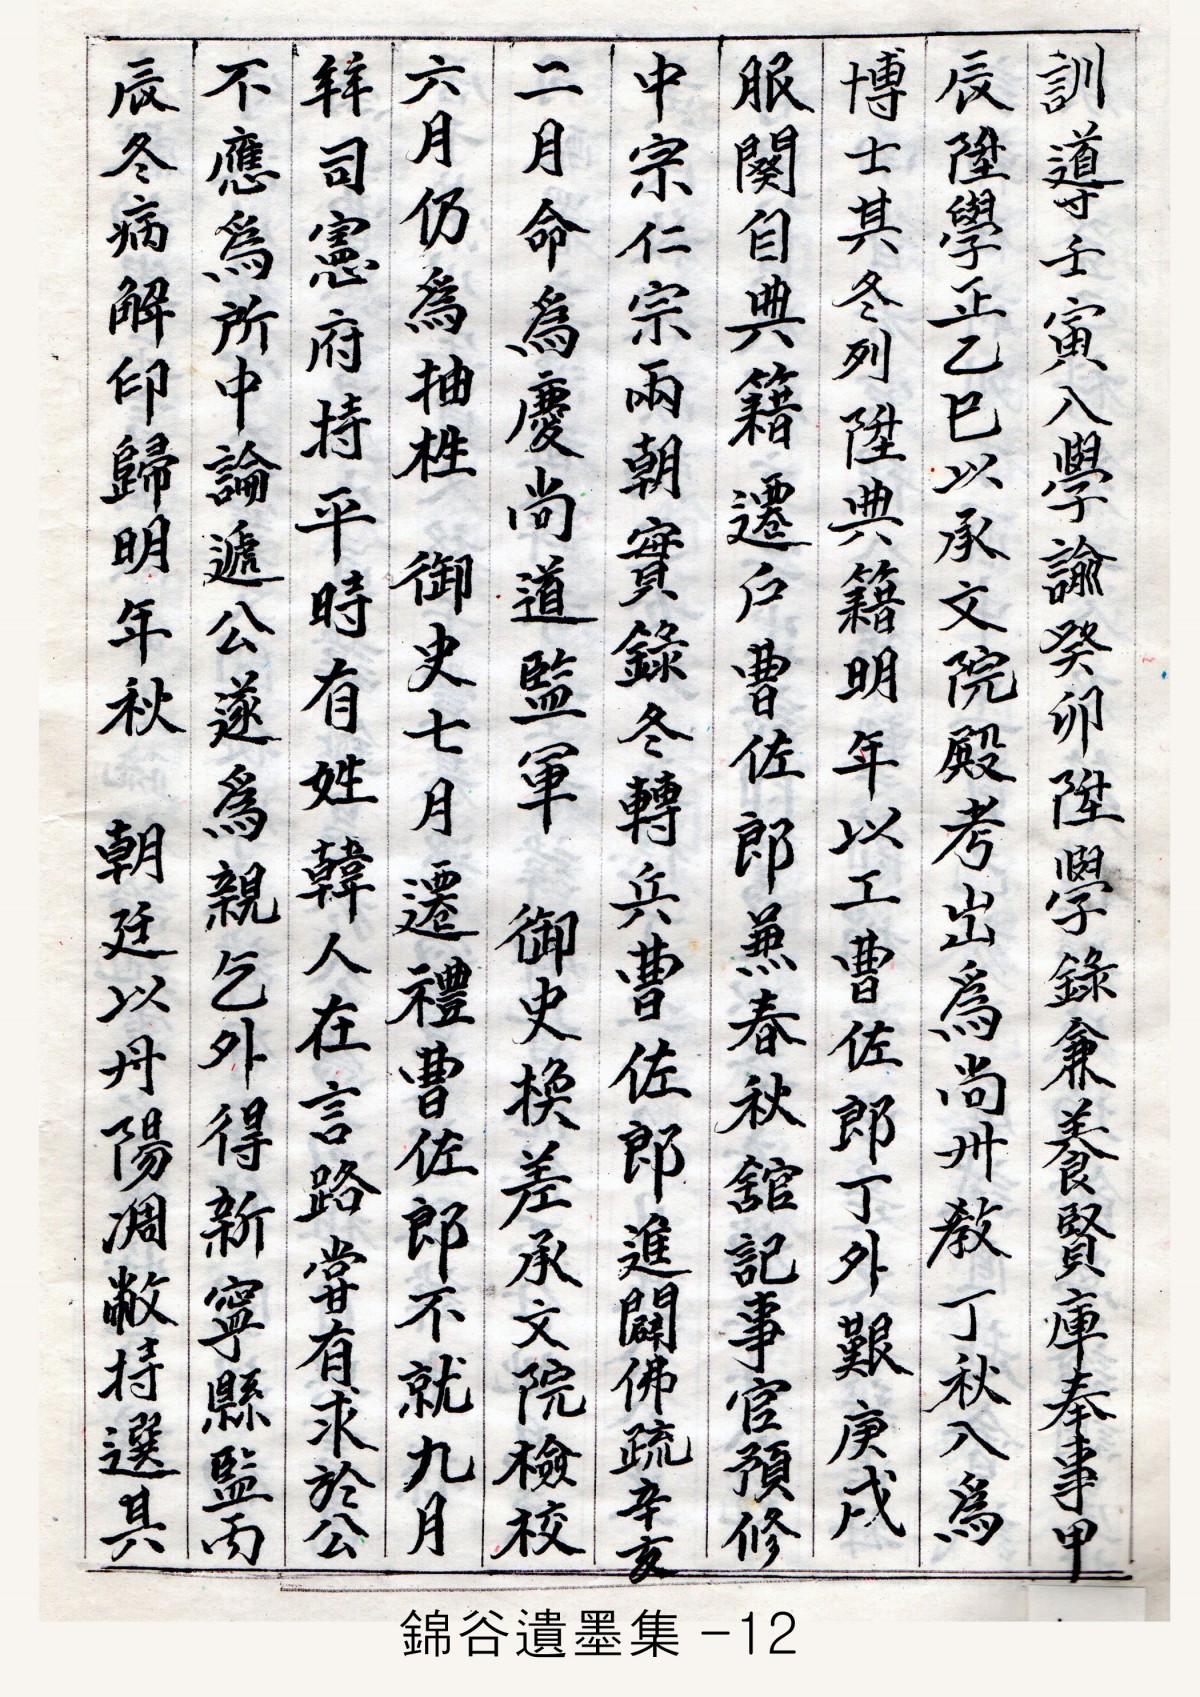 訓導壬寅入學諭癸卯陞學錄兼養賢庫奉事甲
辰陞學正乙巳以承文院殿考出爲尚州教 丁秋入爲
博士其冬列陞典籍明年以工曹佐郎丁外艱庚戌
服闋自典籍遷戶曹佐郎兼春秋舘記事官預修
中宗仁宗兩朝實錄冬轉兵曹佐郎進闢佛疏辛亥
二月命爲慶尚道監軍 御史換差承文院檢校
六月仍爲抽栍 御史七月遷禮曹佐郎不就九月
拜司憲府持平時有姓韓人在言路嘗有求於公
不應爲所中論遞公遂爲親乞外得新寧縣監丙
辰冬病解印歸明年秋 朝廷以丹陽凋敝持選其
錦谷遺墨集 -12